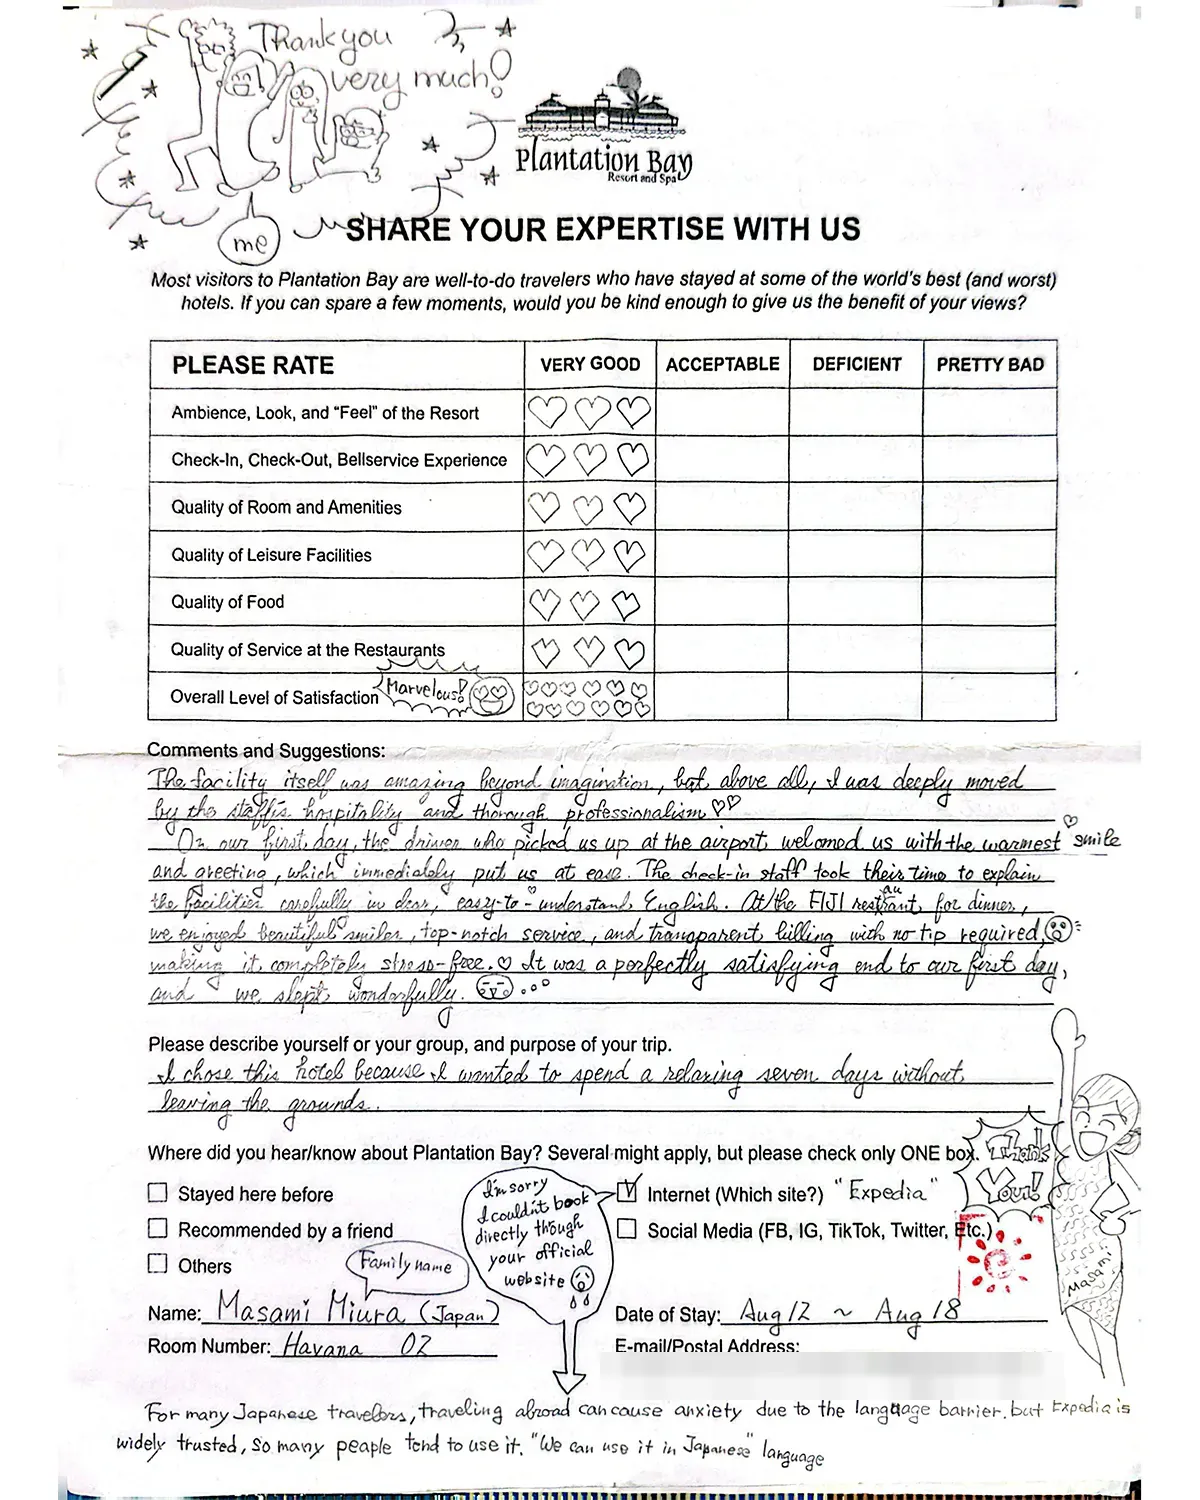 Thank you
very much!
me
Plantation Bay
Resort and Spa
SHARE YOUR EXPERTISE WITH US
Most visitors to Plantation Bay are well-to-do travelers who have stayed at some of the world's best (and worst)
hotels. If you can spare a few moments, would you be kind enough to give us the benefit of your views?
PLEASE RATE VERY GOOD ACCEPTABLE DEFICIENT PRETTY BAD
Ambience, Look, and "Feel" of the Resort ♡ ♡ ♡
Check-In, Check-Out, Bellservice Experience ♡ ♡ ♡
Quality of Room and Amenities ♡ ♡ ♡
Quality of Leisure Facilities ♡ ♡ ♡
Quality of Food ♡ ♡ ♡
Quality of Service at the Restaurants ♡ ♡ ♡
Overall Level of Satisfaction Marvelous! ♡♡♡♡♡♡
♡♡♡♡♡♡
Comments and Suggestions:
The facility itself was amazing beyond imagination, but above all, I was deeply moved
by the staff's hospitality and thorough professionalism ♡♡
On our first day, the driver who picked us up at the airport, welcomed us with the warmest smile ♡
and greeting, which immediately put us at ease. The check-in staff took their time to explain
the facilities carefully in clear, easy-to-understand English. At the FIJI restaurant, for dinner,
we enjoyed beautiful smiles, top-notch service, and transparent billing with no tip required,
making it completely stress-free. ♡ It was a perfectly satisfying end to our first day,
and we slept wonderfully.
Please describe yourself or your group, and purpose of your trip.
I chose this hotel because I wanted to spend a relaxing seven days without
leaving the grounds.
Where did you hear/know about Plantation Bay? Several might apply, but please check only ONE box.
Thank
You!
Stayed here before
Recommended by a friend
Others
I'm sorry
I couldn't book
directly though
your official
website
Internet (Which site?) "Expedia"
Social Media (FB, IG, TikTok, Twitter, Etc.)
Masami
Family name
Name: Masami Miura (Japan)
Date of Stay: Aug 12 ~ Aug 18
Room Number: Havana 02
E-mail/Postal Address:
For many Japanese travelors, traveling abroad can cause anxiety due to the language barrier. but Expedia is
widely trusted, so many peaple tend to use it. "We can use it in Japanese" language